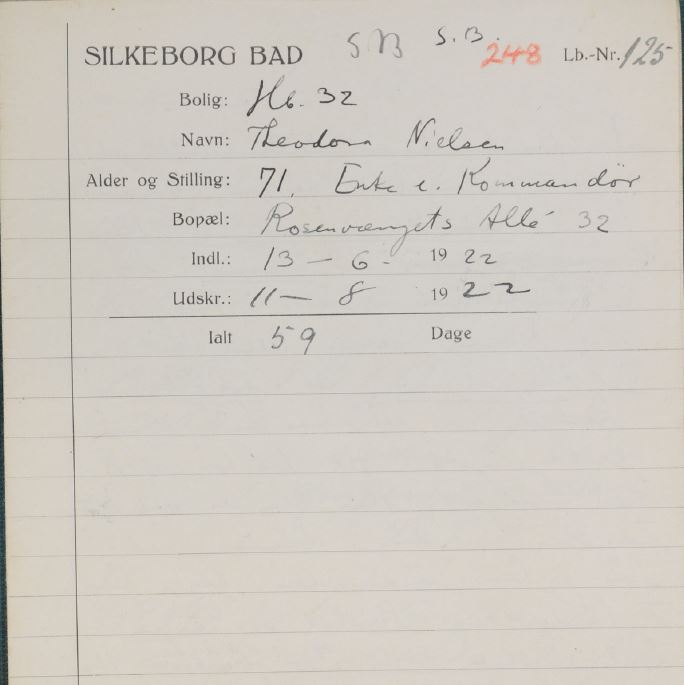 SILKEBORG BAD SB S.B. 248 Lb.-Nr. 125
Bolig: Hb. 32
Navn: Theodora Nielsen
Alder og Stilling: 71. Enke e. Kommandör
Bopæl: Rosenvængets Allé 32
Indl.: 13 - 6 - 19 22
Udskr.: 11 - 8 19 22
Ialt 59 Dage